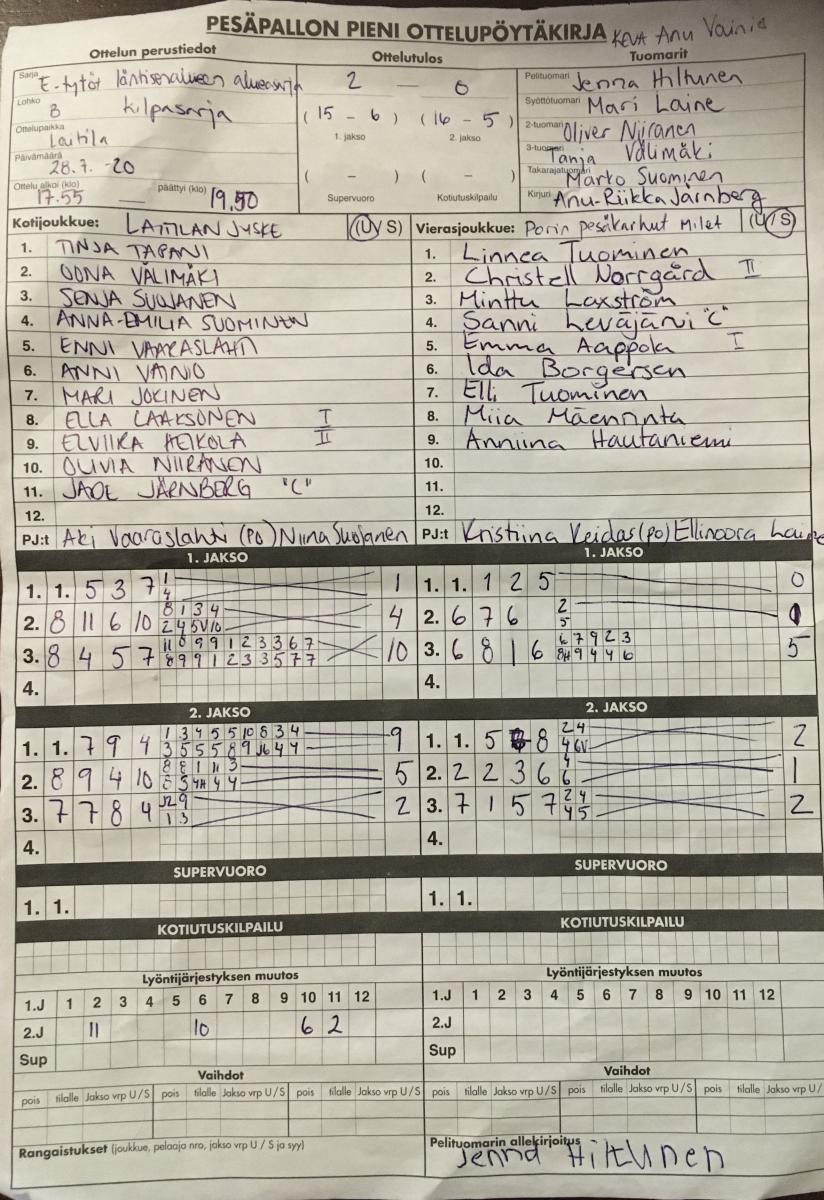 PESÄPALLON PIENI OTTELUPÖYTÄKIRJA KEVA Anu Vainio
Ottelun perustiedot
Sarja E-tytöt läntisenalueen aluesarja
Lohko B kilpasarja
Ottelupaikka Laitila
Päivämäärä 28.7. -20
Ottelu alkoi (klo) 17.55 — päättyi (klo) 19.50
Ottelutulos
2 — 0
( 15 - 6 ) ( 16 - 5 )
1. jakso 2. jakso
( - ) ( - )
Supervuoro Kotiutuskilpailu
Tuomarit
Pelituomari Jenna Hiltunen
Syöttötuomari Mari Laine
2-tuomari Oliver Niiranen
3-tuomari Tanja Välimäki
Takarajatuomari Marto Suominen
Kirjuri Anu-Riikka Järnberg
Kotijoukkue: LAITILAN JYSKE (U/S)
1. TINJA TAPANI
2. OONA VÄLIMÄKI
3. SENJA SUOJANEN
4. ANNA-EMILIA SUOMINEN
5. ENNI VAARASLAHTI
6. ANNI VAINIO
7. MARI JOKINEN
8. ELLA LAAKSONEN I
9. ELVIIRA HEIKOLA II
10. OLIVIA NIIRANEN
11. JADE JÄRNBERG "C"
12.
PJ:t Aki Vaaraslahti (PO) Niina Suojanen
Vierasjoukkue: Porin pesäkarhut Milet (U/S)
1. Linnea Tuominen
2. Christell Norrgård II
3. Minttu Laxström
4. Sanni Leväjärvi "C"
5. Emma Aappola I
6. Ida Borgersen
7. Elli Tuominen
8. Miia Mäenrinta
9. Anniina Hautaniemi
10.
11.
12.
PJ:t Kristiina Keidas (PO) Ellinoora Laine
1. JAKSO
1. 1. 5 3 7 1 1
4
2. 8 11 6 10 8 1 3 4 4
2 4 5V 10
3. 8 4 5 7 11 8 9 9 1 2 3 3 6 7 10
8 9 9 1 2 3 3 5 7 7
4.
1. JAKSO
1. 1. 1 2 5 0
2. 6 7 6 2 1
5
3. 6 8 1 6 6 7 9 2 3 5
8H 9 4 4 6
4.
2. JAKSO
1. 1. 7 9 4 1 3 4 5 5 10 8 3 4 9
3 5 5 5 8 9 4 4
2. 8 9 4 10 8 8 1 11 3 5
8 3 4H 4 4
3. 7 7 8 4 9 2
1 3
4.
2. JAKSO
1. 1. 5 8 2 4 2
4 6V
2. 2 2 3 6 4 1
6
3. 7 1 5 7 2 4 2
4 5
4.
SUPERVUORO
1. 1.
SUPERVUORO
1. 1.
KOTIUTUSKILPAILU
KOTIUTUSKILPAILU
Lyöntijärjestyksen muutos
1.J 1 2 3 4 5 6 7 8 9 10 11 12
2.J 11 10 6 2
Sup
Lyöntijärjestyksen muutos
1.J 1 2 3 4 5 6 7 8 9 10 11 12
2.J
Sup
Vaihdot
pois tilalle Jakso vrp U/S pois tilalle Jakso vrp U/S pois tilalle Jakso vrp U/S
Vaihdot
pois tilalle Jakso vrp U/S pois tilalle Jakso vrp U/S pois tilalle Jakso vrp U/
Rangaistukset (joukkue, pelaaja nro, jakso vrp U / S ja syy)
Pelituomarin allekirjoitus
Jenna Hiltunen